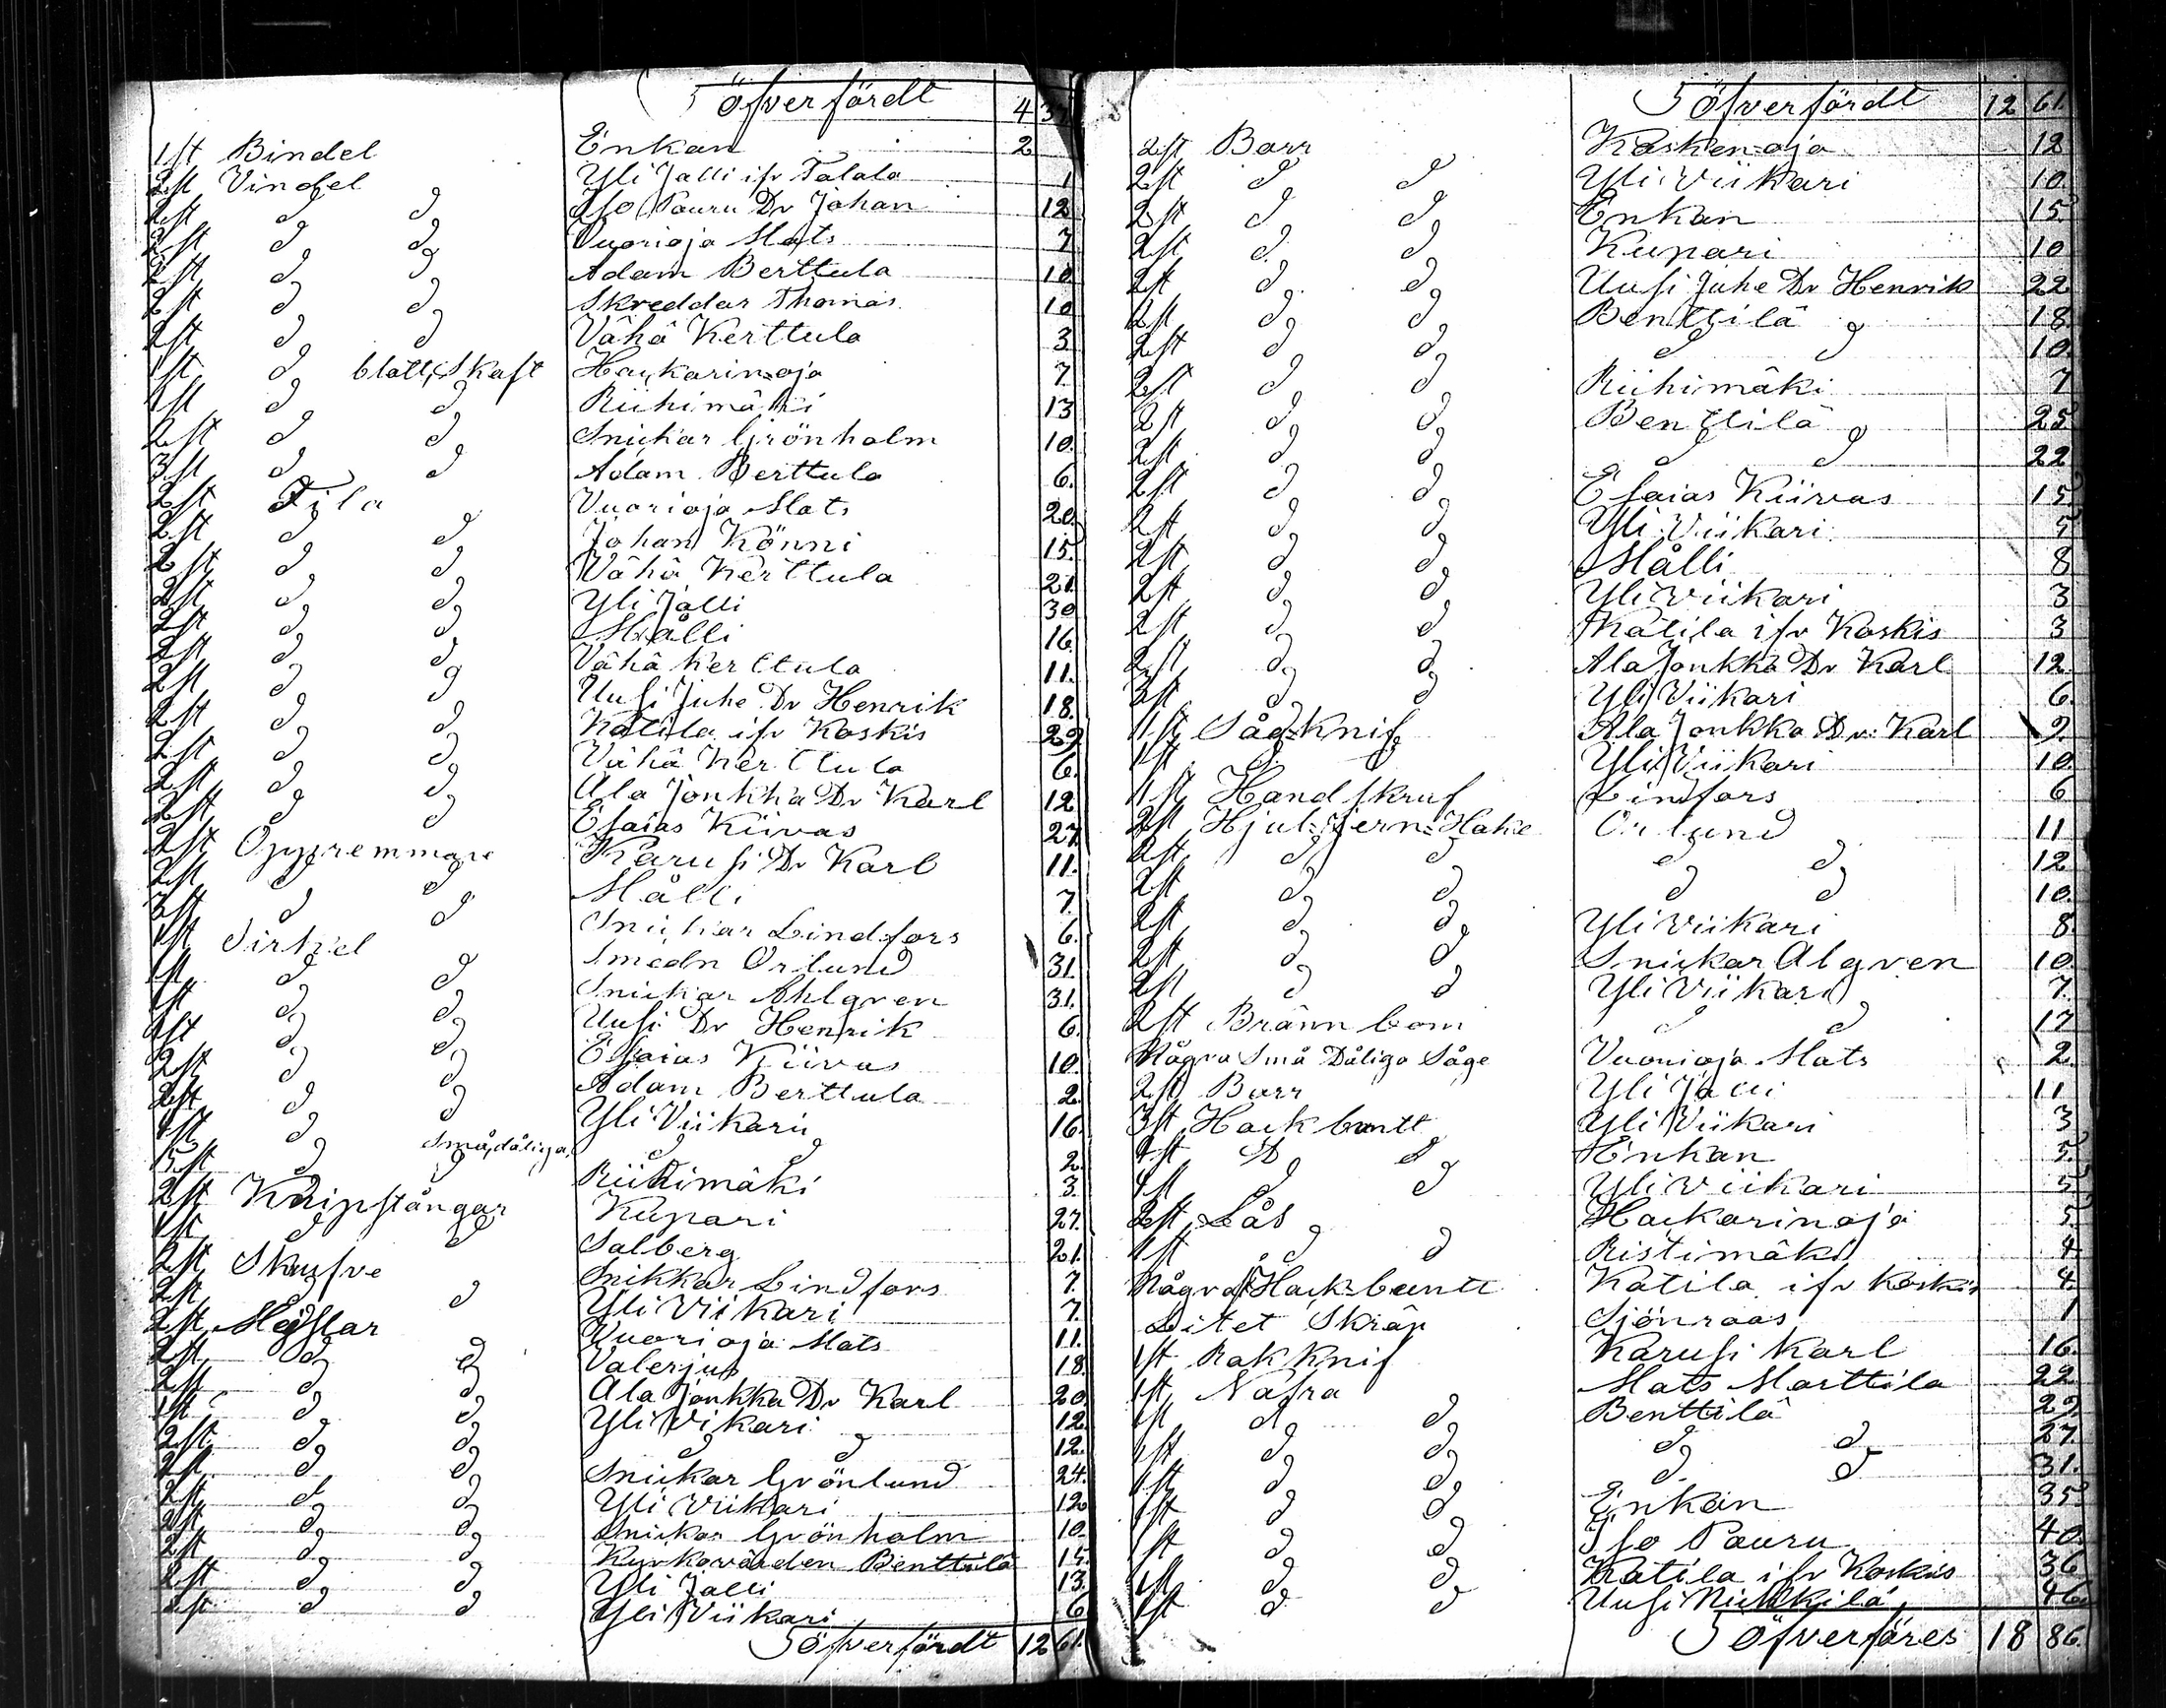 Öfverfördt 4 37
1 st Bindel Enkan 2
2 st Vindel Yli Jalli ifr Talala 1
2 st d d Iso Pauru Dr Johan 12
2 st d d Vuorioja Mats 7
2 st d d Adam Berttula 10
2 st d d Skreddar Thomas 10
2 st d d Vähä Kerttula 3
1 st d blott Skaft Hackarin=oja 7
1 st d d Riihimäki 13
2 st d d Snickar Grönholm 10
3 st d d Adam Berttula 6
2 st Fila Vuorioja Mats 20
2 st d d Johan Könni 15
2 st d d Vähä Kerttula 21
2 st d d Yli Jalli 30
2 st d d Målli 16
2 st d d Vähä Kerttula 11
2 st d d Uusi Juhe Dr Henrik 18
2 st d d Katila ifr Koskis 29
2 st d d Vähä Kerttula 6
2 st d d Ala Jonkka Dr Karl 12
2 st d d Esaias Kiivas 27
2 st Karusi Dr Karl 11
2 st d d Målli 7
3 st d d Snickar Lindfors 6
1 st Sirkel Smedn Orlund 31
1 st d d Snickar Ahlgren 31
1 st d d Uusi Dr Henrik 6
1 st d d Esaias Kiivas 10
2 st d d Adam Berttula 2
2 st d d Yli Viikari 16
1 st d små, dåliga d d 2
5 st d d Riihimäki 3
2 st Knipstångar Kupari 27
1 st d d Salberg 21
2 st Skrufve Snikkar Lindfors 7
2 st d Yli Viikari 7
2 st Mejslar Vuorioja Mats 11
2 st d d Valerjus 18
2 st d d Ala Jonkka Dr Karl 20
1 st d d Yli Vikari 12
2 st d d d d 12
2 st d d Snickar Grönlund 24
2 st d d Yli Viikari 12
2 st d d Snickar Grönholm 10
2 st d d Kyrkovärden Benttilä 15
2 st d d Yli Jalli 13
2 st d d Yli Viikari 6
Öfverfördt 12 61
Öfverfördt 12 61
2 st Borr Kosken=oja 12
2 st d d Yli Viikari 10
2 st d d Enkan 15
2 st d d Kupari 10
2 st d d Uusi Juhe Dr Henrik 22
2 st d d Benttilä 18
2 st d d d d 10
2 st d d Riihimäki 7
2 st d d Benttilä 25
2 st d d d d 22
2 st d d Esaias Kiivas 15
2 st d d Yli Viikari 5
2 st d d Målli 8
2 st d d Yli Viikari 3
2 st d d Katila ifr Koskis 3
2 st d d Ala Jonkka Dr Karl 12
3 st d d Yli Viikari 6
1 st Såg=Knif Ala Jonkka Dr Karl 9
1 st d Yli Viikari 10
1 st Handskruf Lindfors 6
2 st Hjul=Jern=Hake Orlund 11
2 st d d d d 12
2 st d d d d 10
2 st d d Yli Viikari 8
2 st d d Snickar Algren 10
2 st d d Yli Viikari 7
2 st Brännbom d d 17
Några Små Dåliga Såge Vuorioja Mats 2
2 st Borr Yli Jalli 11
3 st Hack buntt Yli Viikari 3
4 st D d Enkan 5
4 st d d Yli Viikari 5
2 st Lås Hackarinoja 5
1 st d d Ristimäki 4
Några Hack=buntt Katila ifr Koskis 4
Litet Skräp Sjönraas 1
1 st Rak Knif Karusi Karl 16
1 st Nafra Mats Marttila 22
1 st d d Benttilä 29
1 st d d d d 27
1 st d d d d 31
1 st d d Enkan 35
1 st d d Iso Pauru 40
1 st d d Katila ifr Koskis 36
1 st d d Uusi Mikkilä 46
Öfverföres 18 86